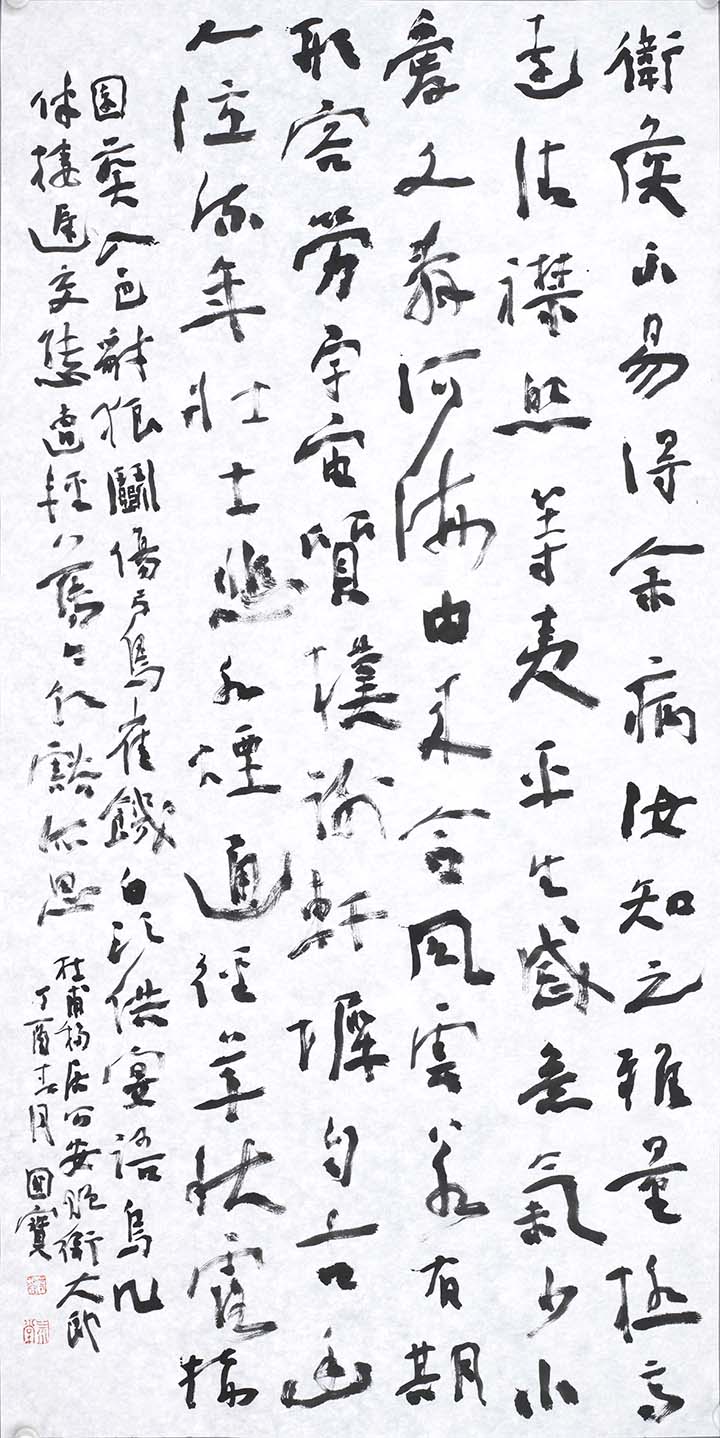 衛侯不易得余病汝知之雅量極高
遠清襟照等夷平生感意氣少小
愛文辭河海由來合風雲若有期
形容勞宇宙質樸謝軒墀自古幽
人泣流年壯士悲水煙通徑草秋露接
園葵入邑豺狼鬭傷弓鳥雀饑白頭供宴語烏几
伴棲遲交態遭輕薄今朝豁所思 杜甫移居公安贈衛大郎
丁酉春月 国寶